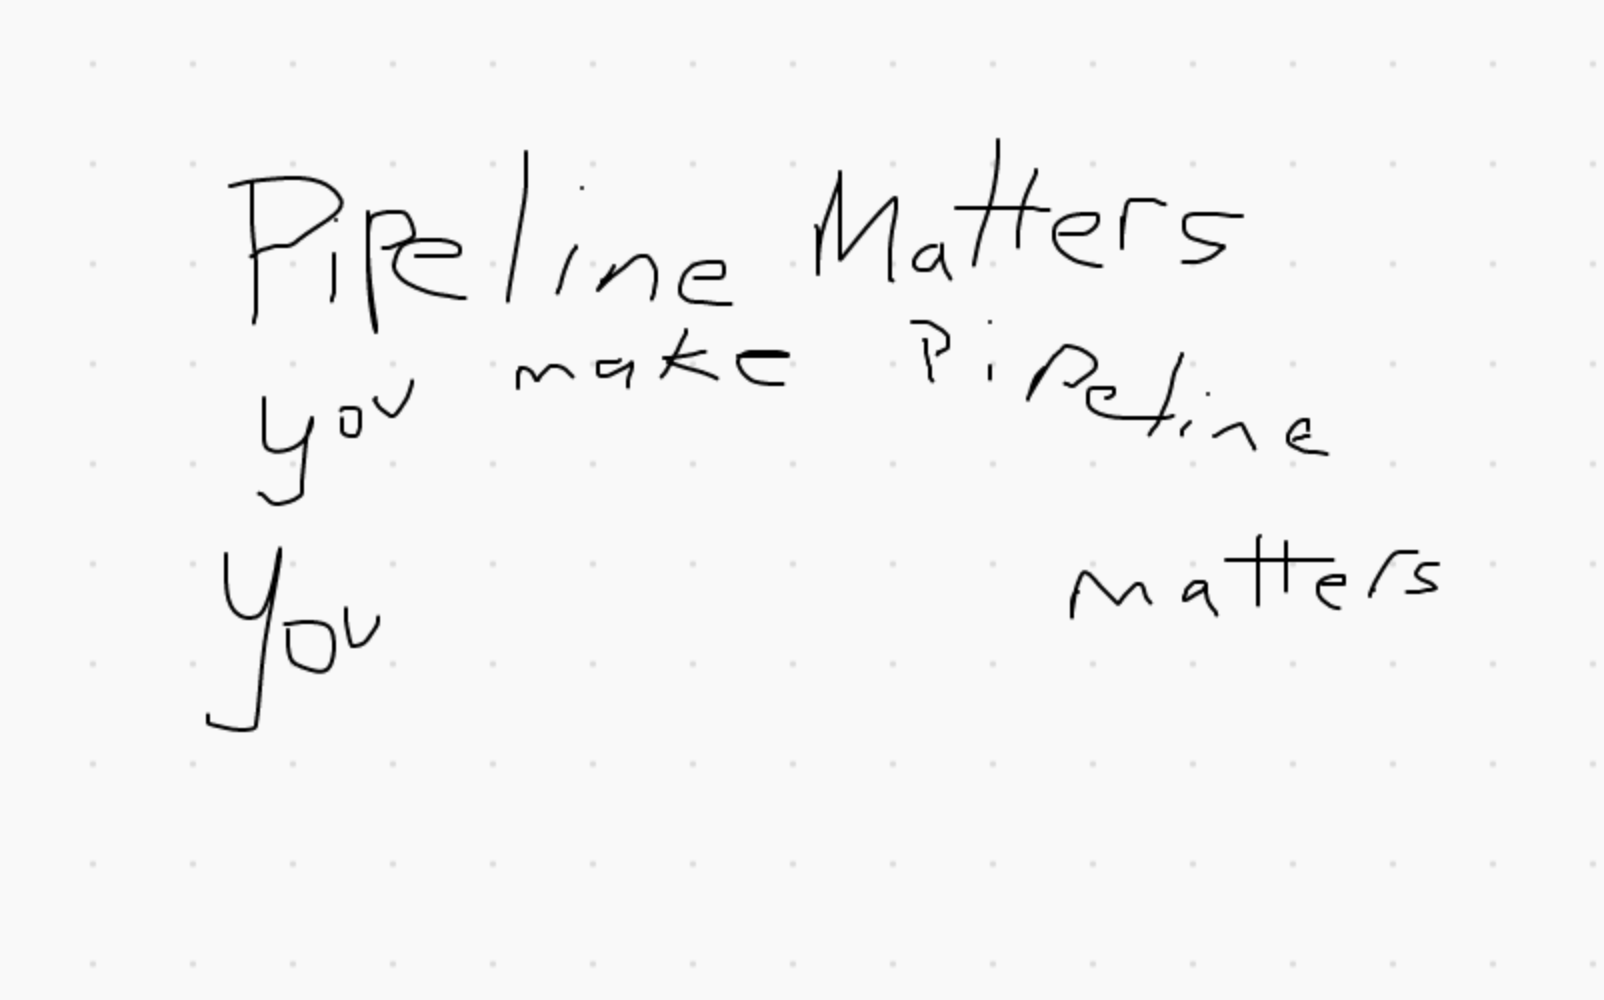 Pipeline Matters
you make Pipeline
you matters